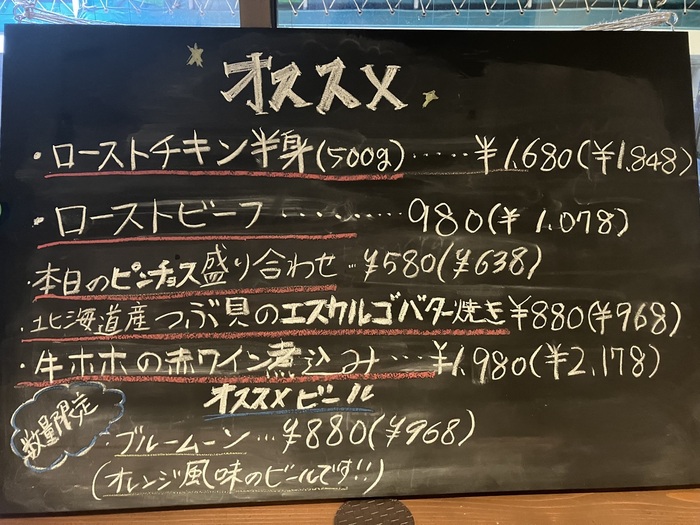 オススメ
・ローストチキン半身(500g)‥‥‥¥1,680(¥1,848)
・ローストビーフ‥‥‥‥‥980(¥1,078)
・本日のピンチョス盛り合わせ‥¥580(¥638)
・北海道産つぶ貝のエスカルゴバター焼き¥880(¥968)
・牛ホホの赤ワイン煮込み‥‥¥1,980(¥2,178)
オススメビール
数量限定
・ブルームーン…¥880(¥968)
(オレンジ風味のビールです!!)